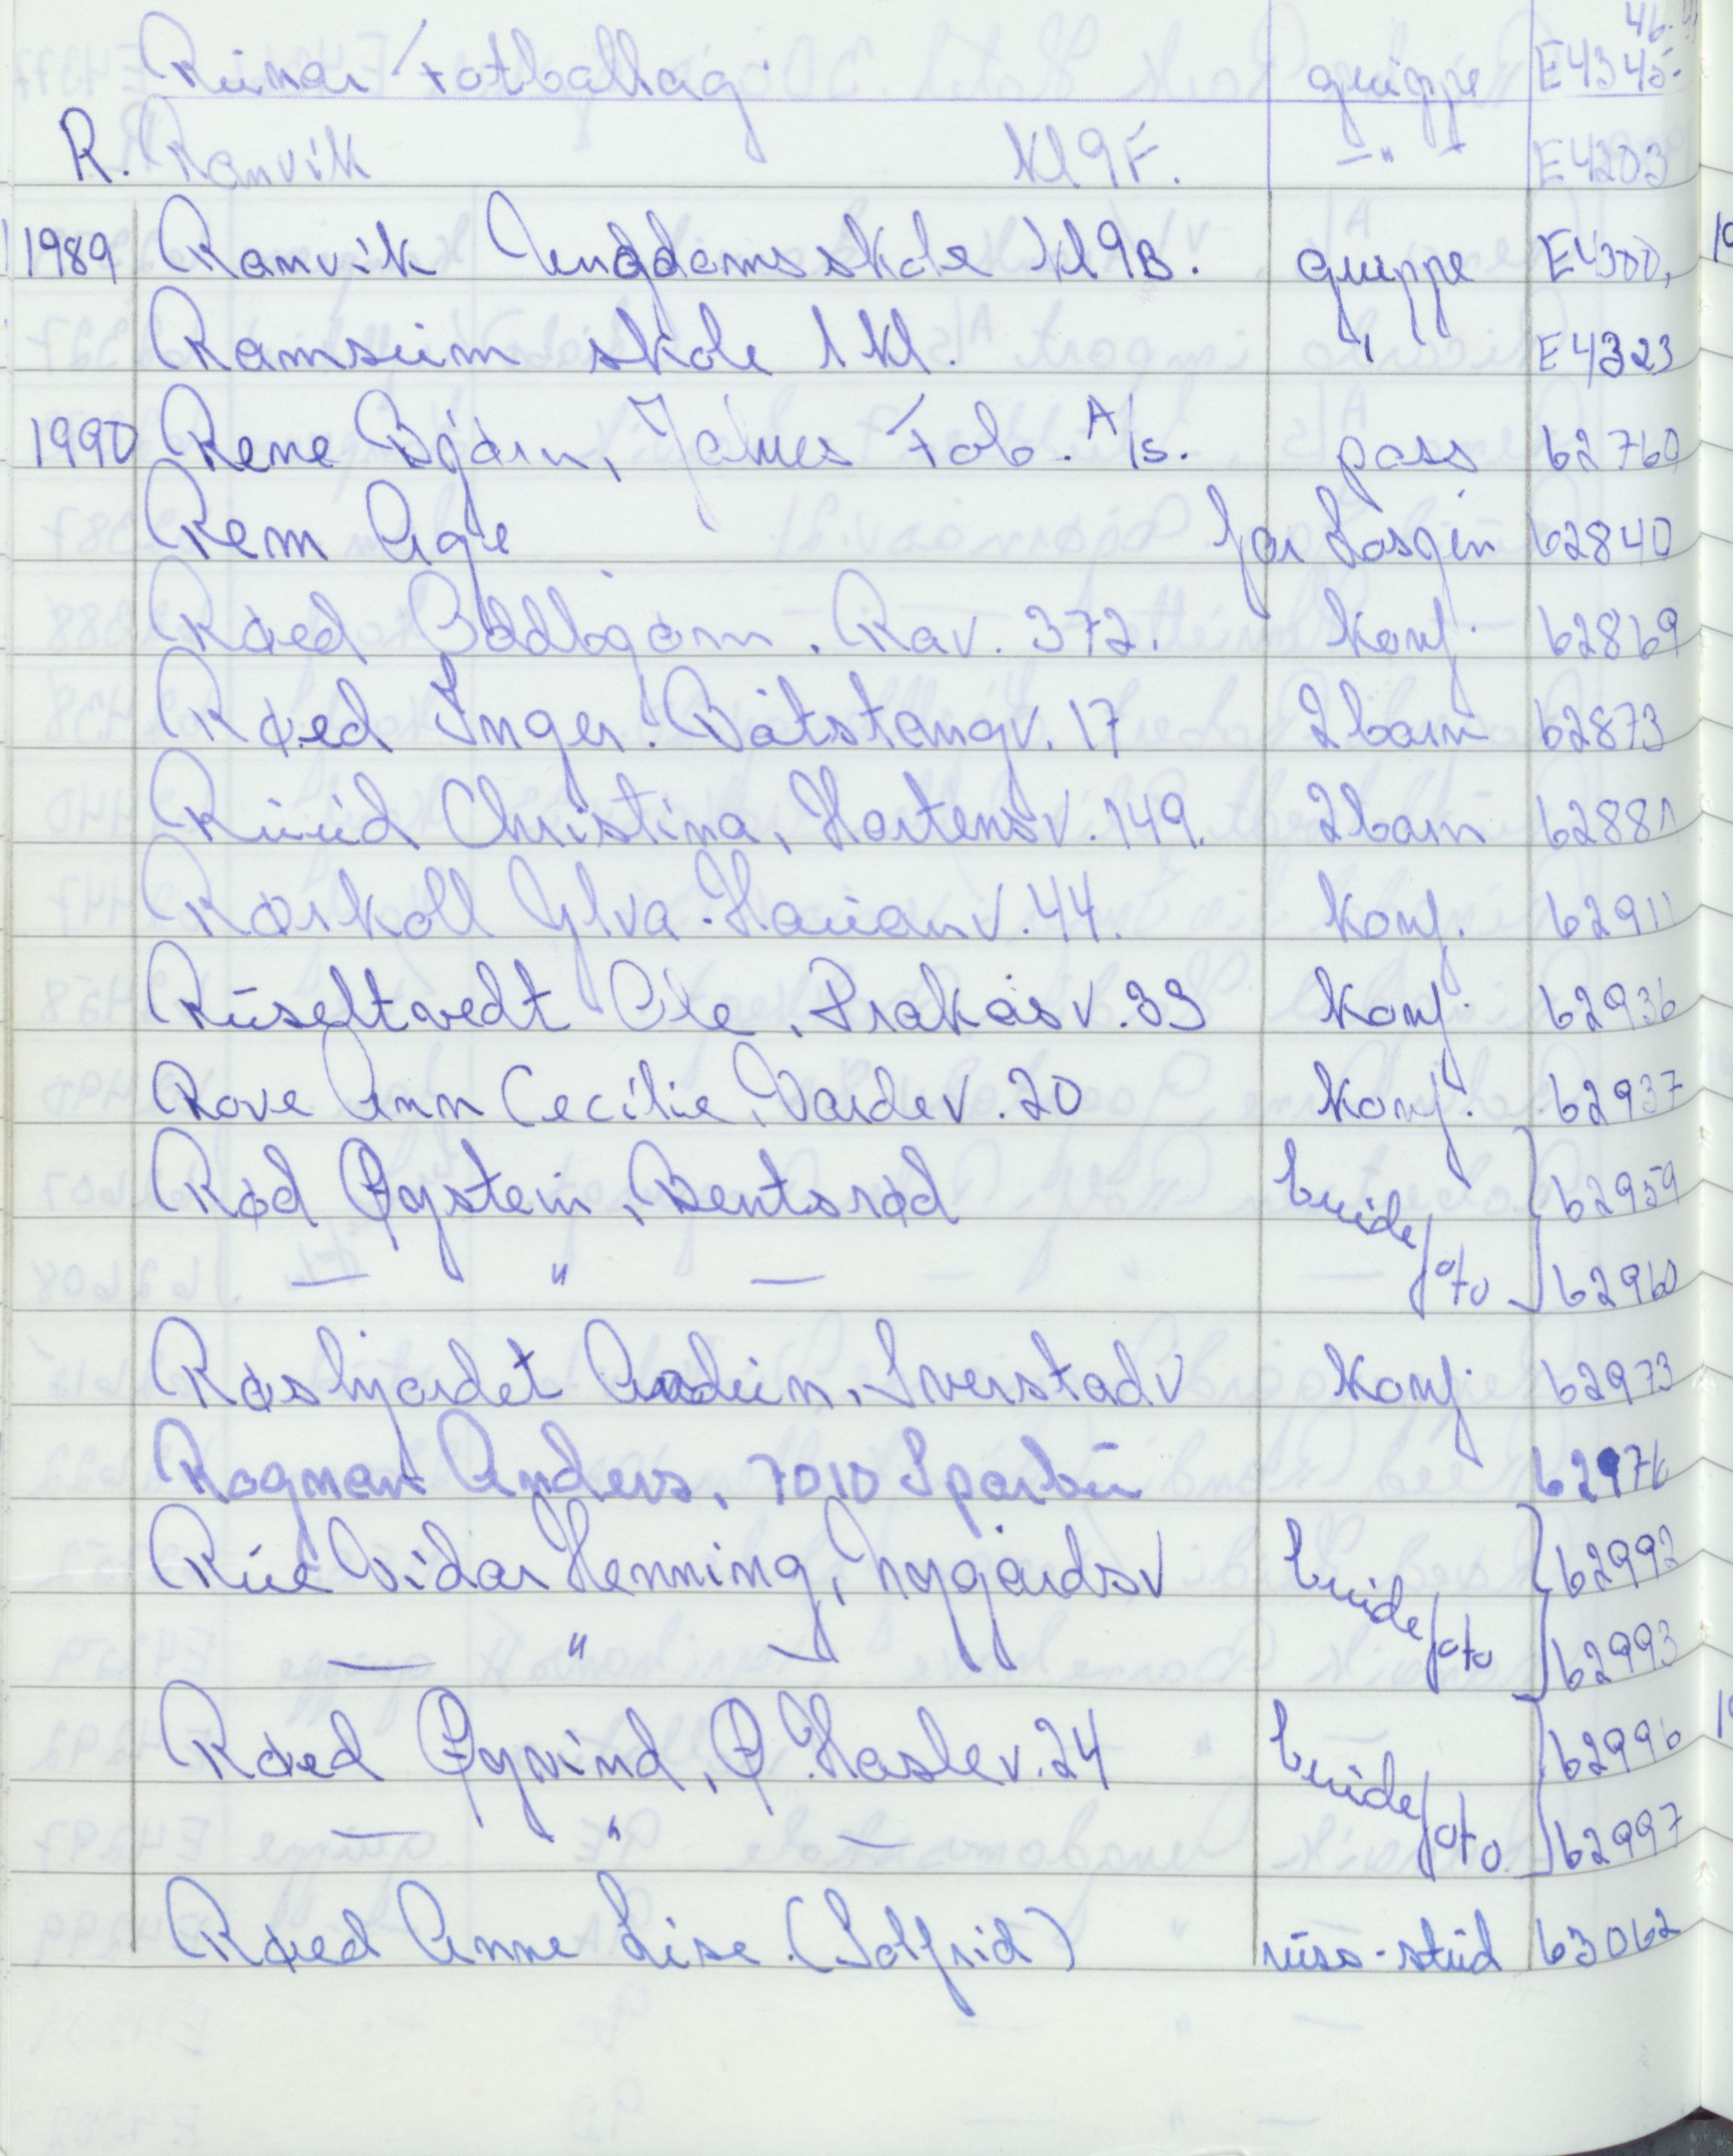 46.
Runar Fotballag. gruppe E4345-
R. Ranvik Kl 9F. — " — E4203
1989 Ranvik Ungdomsskole kl 9B. gruppe E4300,
Ramsum skole 1 kl. " E4323
1990 Rene Bjørn, Jahres Fab. A/s. pass 62760
Rem Åge for Losgin 62840
Røed Oddbjørn. Rav. 372. Konf. 62869
Røed Inger. Båtstangv. 17 2 barn 62873
Ruud Christina, Hortensv. 149. 2 barn 62881
Røskoll Ylva. Hauanv. 44. Konf. 62911
Rüseltvedt Ole, Prakåsv. 33 Konf. 62936
Rove Ann Cecilie, Vardev. 20 Konf. 62937
Rød Øystein, Bentsrød brude 62959
— " — foto 62960
Røshjordet Audun, Sverstadv Konf. 62973
Rogman Anders, 7010 Sparbu 62976
Rue Vidar Henning, Nygårdsv brude 62992
— " — foto 62993
Røed Øyvind, Ø. Haslev. 24 brude 62996
— " — foto 62997
Røed Anne Lise (Solfrid) russ-stud 63062